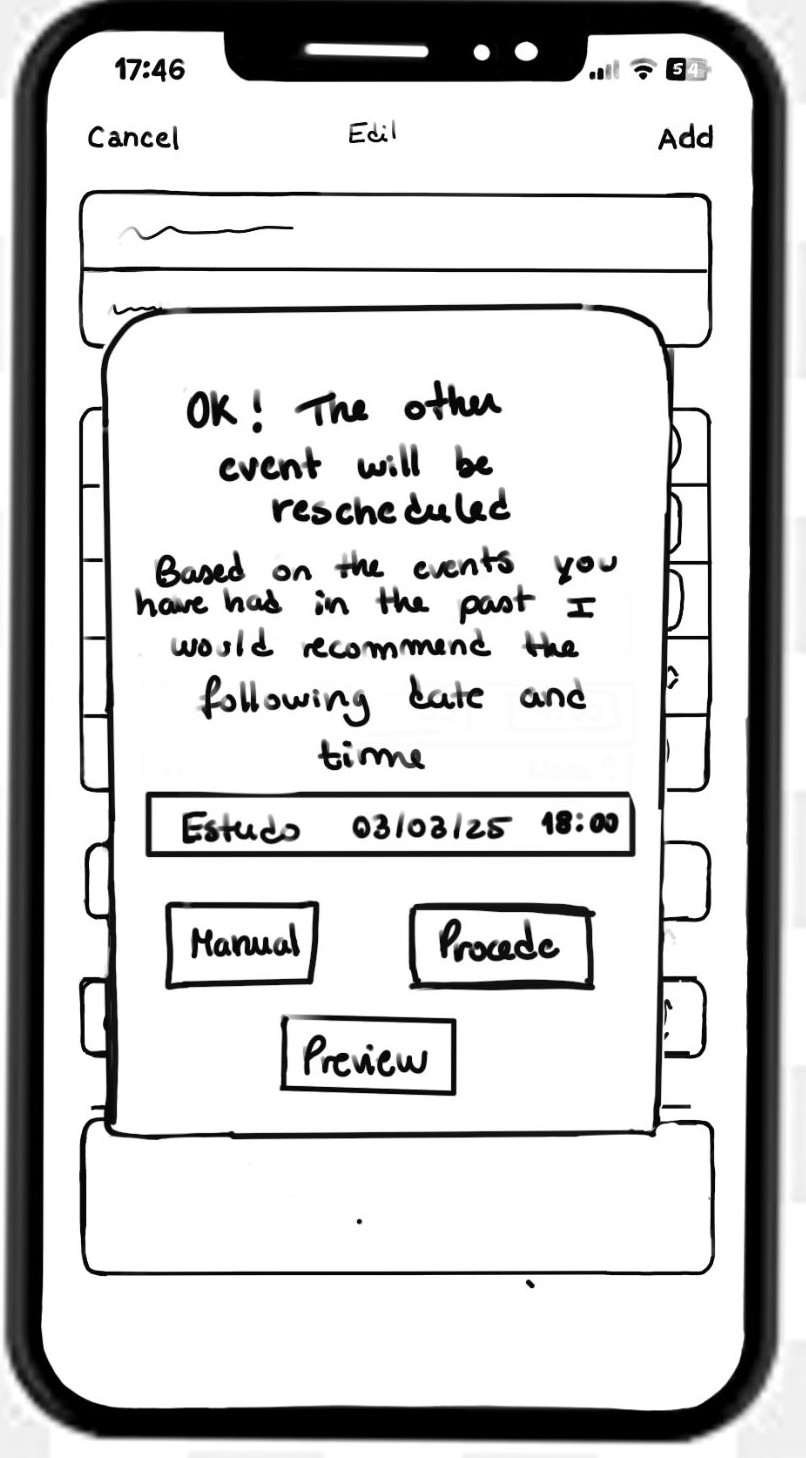 17:46 54
Cancel Edil Add
OK! The other
event will be
rescheduled
Based on the events you
have had in the past I
would recommend the
following date and
time
Estudo 03/03/25 18:00
Manual Procede
Preview